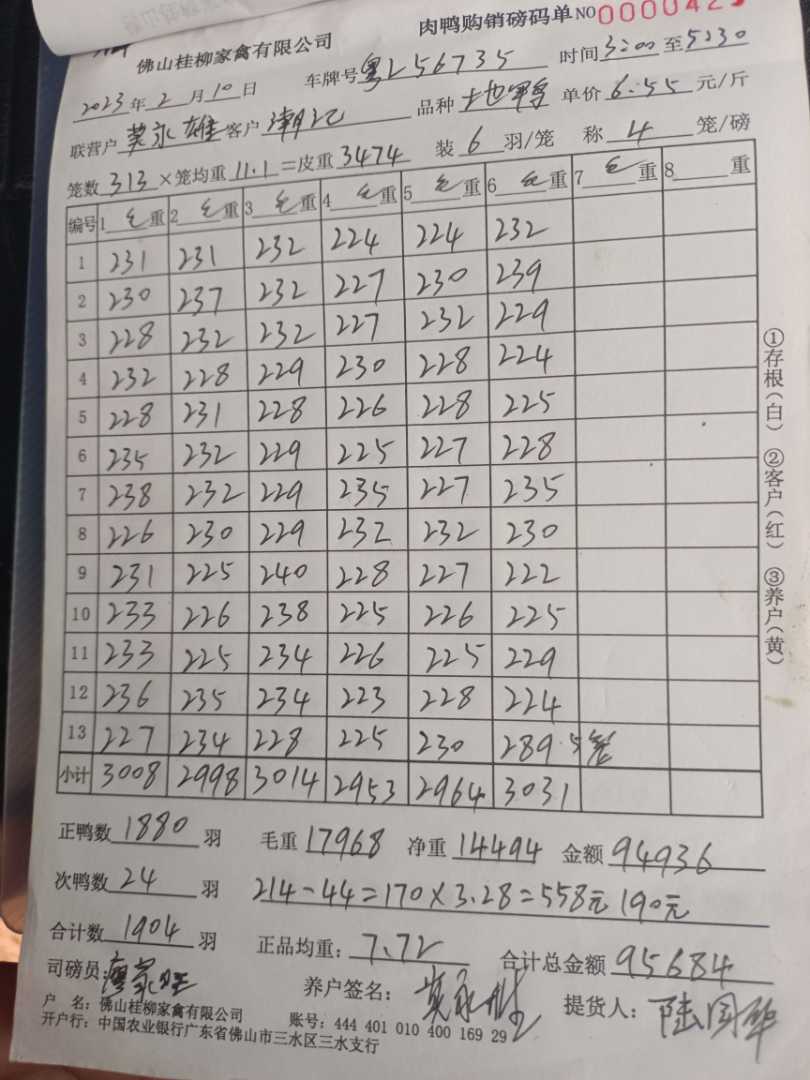 肉鸭购销磅码单 NO 000042
佛山桂柳家禽有限公司
2023年2月10日 车牌号粤L56735 时间3:00至5:30
联营户莫永雄客户潮记 品种土地鸭 单价6.55元/斤
笼数313×笼均重11.1=皮重3474 装6羽/笼 称4笼/磅
编号 1毛重 2毛重 3毛重 4毛重 5毛重 6毛重 7毛重 8重
1 231 231 232 224 224 232
2 230 237 232 227 230 239
3 228 232 232 227 232 229
4 232 228 229 230 228 224
5 228 231 228 226 228 225
6 235 232 229 225 227 228
7 238 232 229 235 227 235
8 226 230 229 232 232 230
9 231 225 240 228 227 222
10 233 226 238 225 226 225
11 233 225 234 226 225 229
12 236 235 234 223 228 224
13 227 234 228 225 230 289.5笼
小计 3008 2998 3014 2953 2964 3031
正鸭数1880羽 毛重17968 净重14494 金额94936
次鸭数24羽 214-44=170×3.28=558元 190元
合计数1904羽 正品均重:7.72 合计总金额95684
司磅员:廖家 养户签名:莫永雄 提货人:陆国华
户 名:佛山桂柳家禽有限公司 账号:444 401 010 400 169 29
开户行:中国农业银行广东省佛山市三水区三水支行
①存根(白) ②客户(红) ③养户(黄)